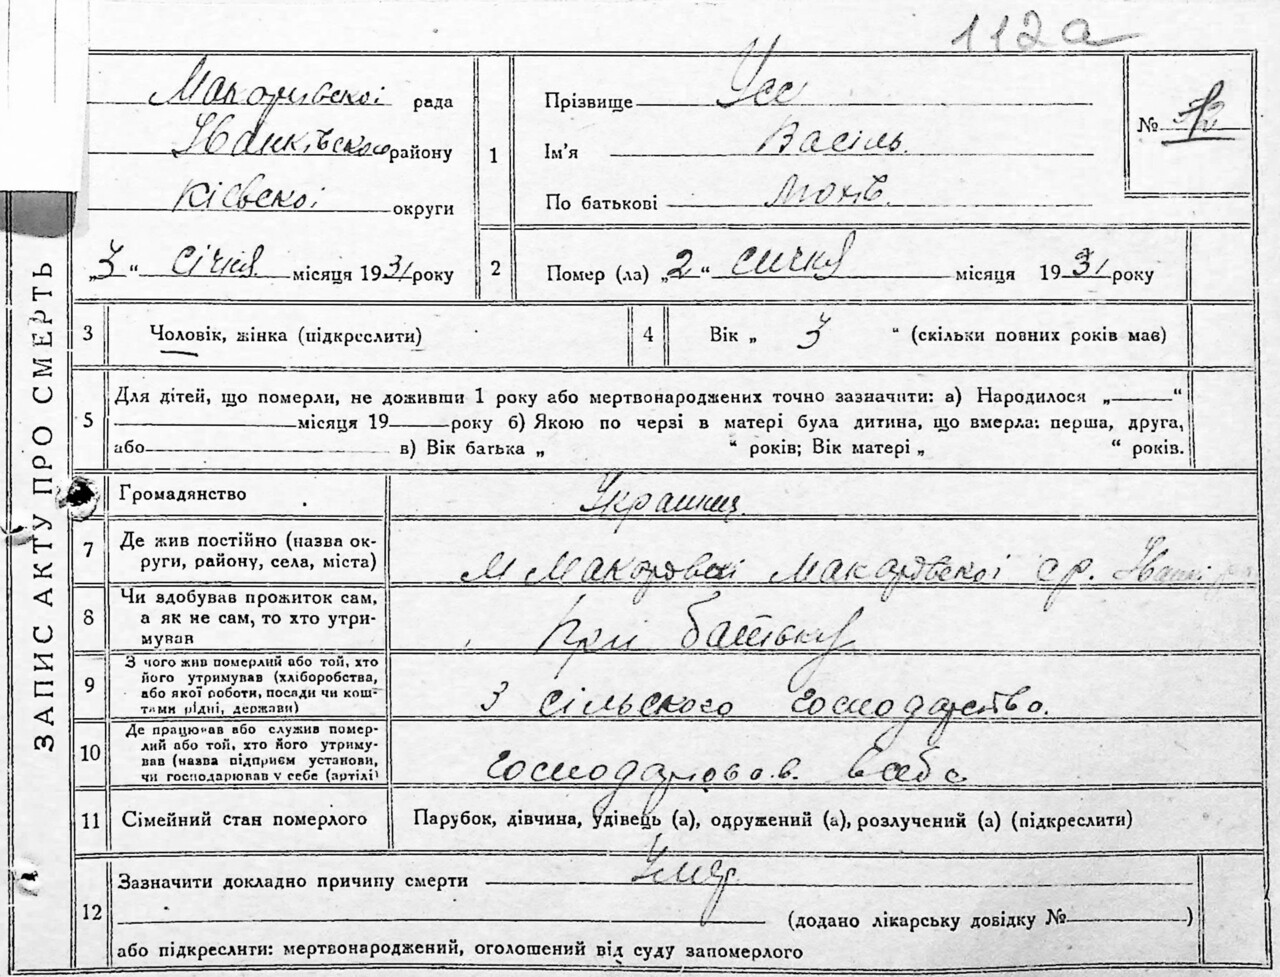 112а
Макорувскої рада
Іванківського району
Кієвскої округи
„3“ січня місяця 1931 року
1
Прізвище Усс
Ім'я Васіль.
По батькові
№
2 Помер (ла) „2“ сичня місяця 1931 року
ЗАПИС АКТУ ПРО СМЕРТЬ
3 Чоловік, жінка (підкреслити)
4 Вік „ 3 “ (скільки повних років мав)
5 Для дітей, що померли, не доживши 1 року або мертвонароджених точно зазначити: а) Народилося „ “
місяця 19 року б) Якою по черзі в матері була дитина, що вмерла: перша, друга,
або в) Вік батька „ “ років; Вік матері „ “ років.
Громадянство Украинц.
7 Де жив постійно (назва ок-
руги, району, села, міста)
М Макоровскі Макоровскої ср.
8 Чи здобував прожиток сам,
а як не сам, то хто утри-
мував
При батьку
9 З чого жив померлий або той, хто
його утримував (хліборобства,
або якої роботи, посади чи кош-
тами рідні, держави)
З сільского господарство.
10 Де працював або служив помер-
лий або той, хто його утриму-
вав (назва підприєм установи,
чи господарював у себе (артілі)
господарював. в себе
11 Сімейний стан померлого
Парубок, дівчина, удівець (а), одружений (а), розлучений (а) (підкреслити)
12 Зазначити докладно причину смерти Умер.
(додано лікарську довідку № )
або підкреслити: мертвонароджений, оголошений від суду запомерлого